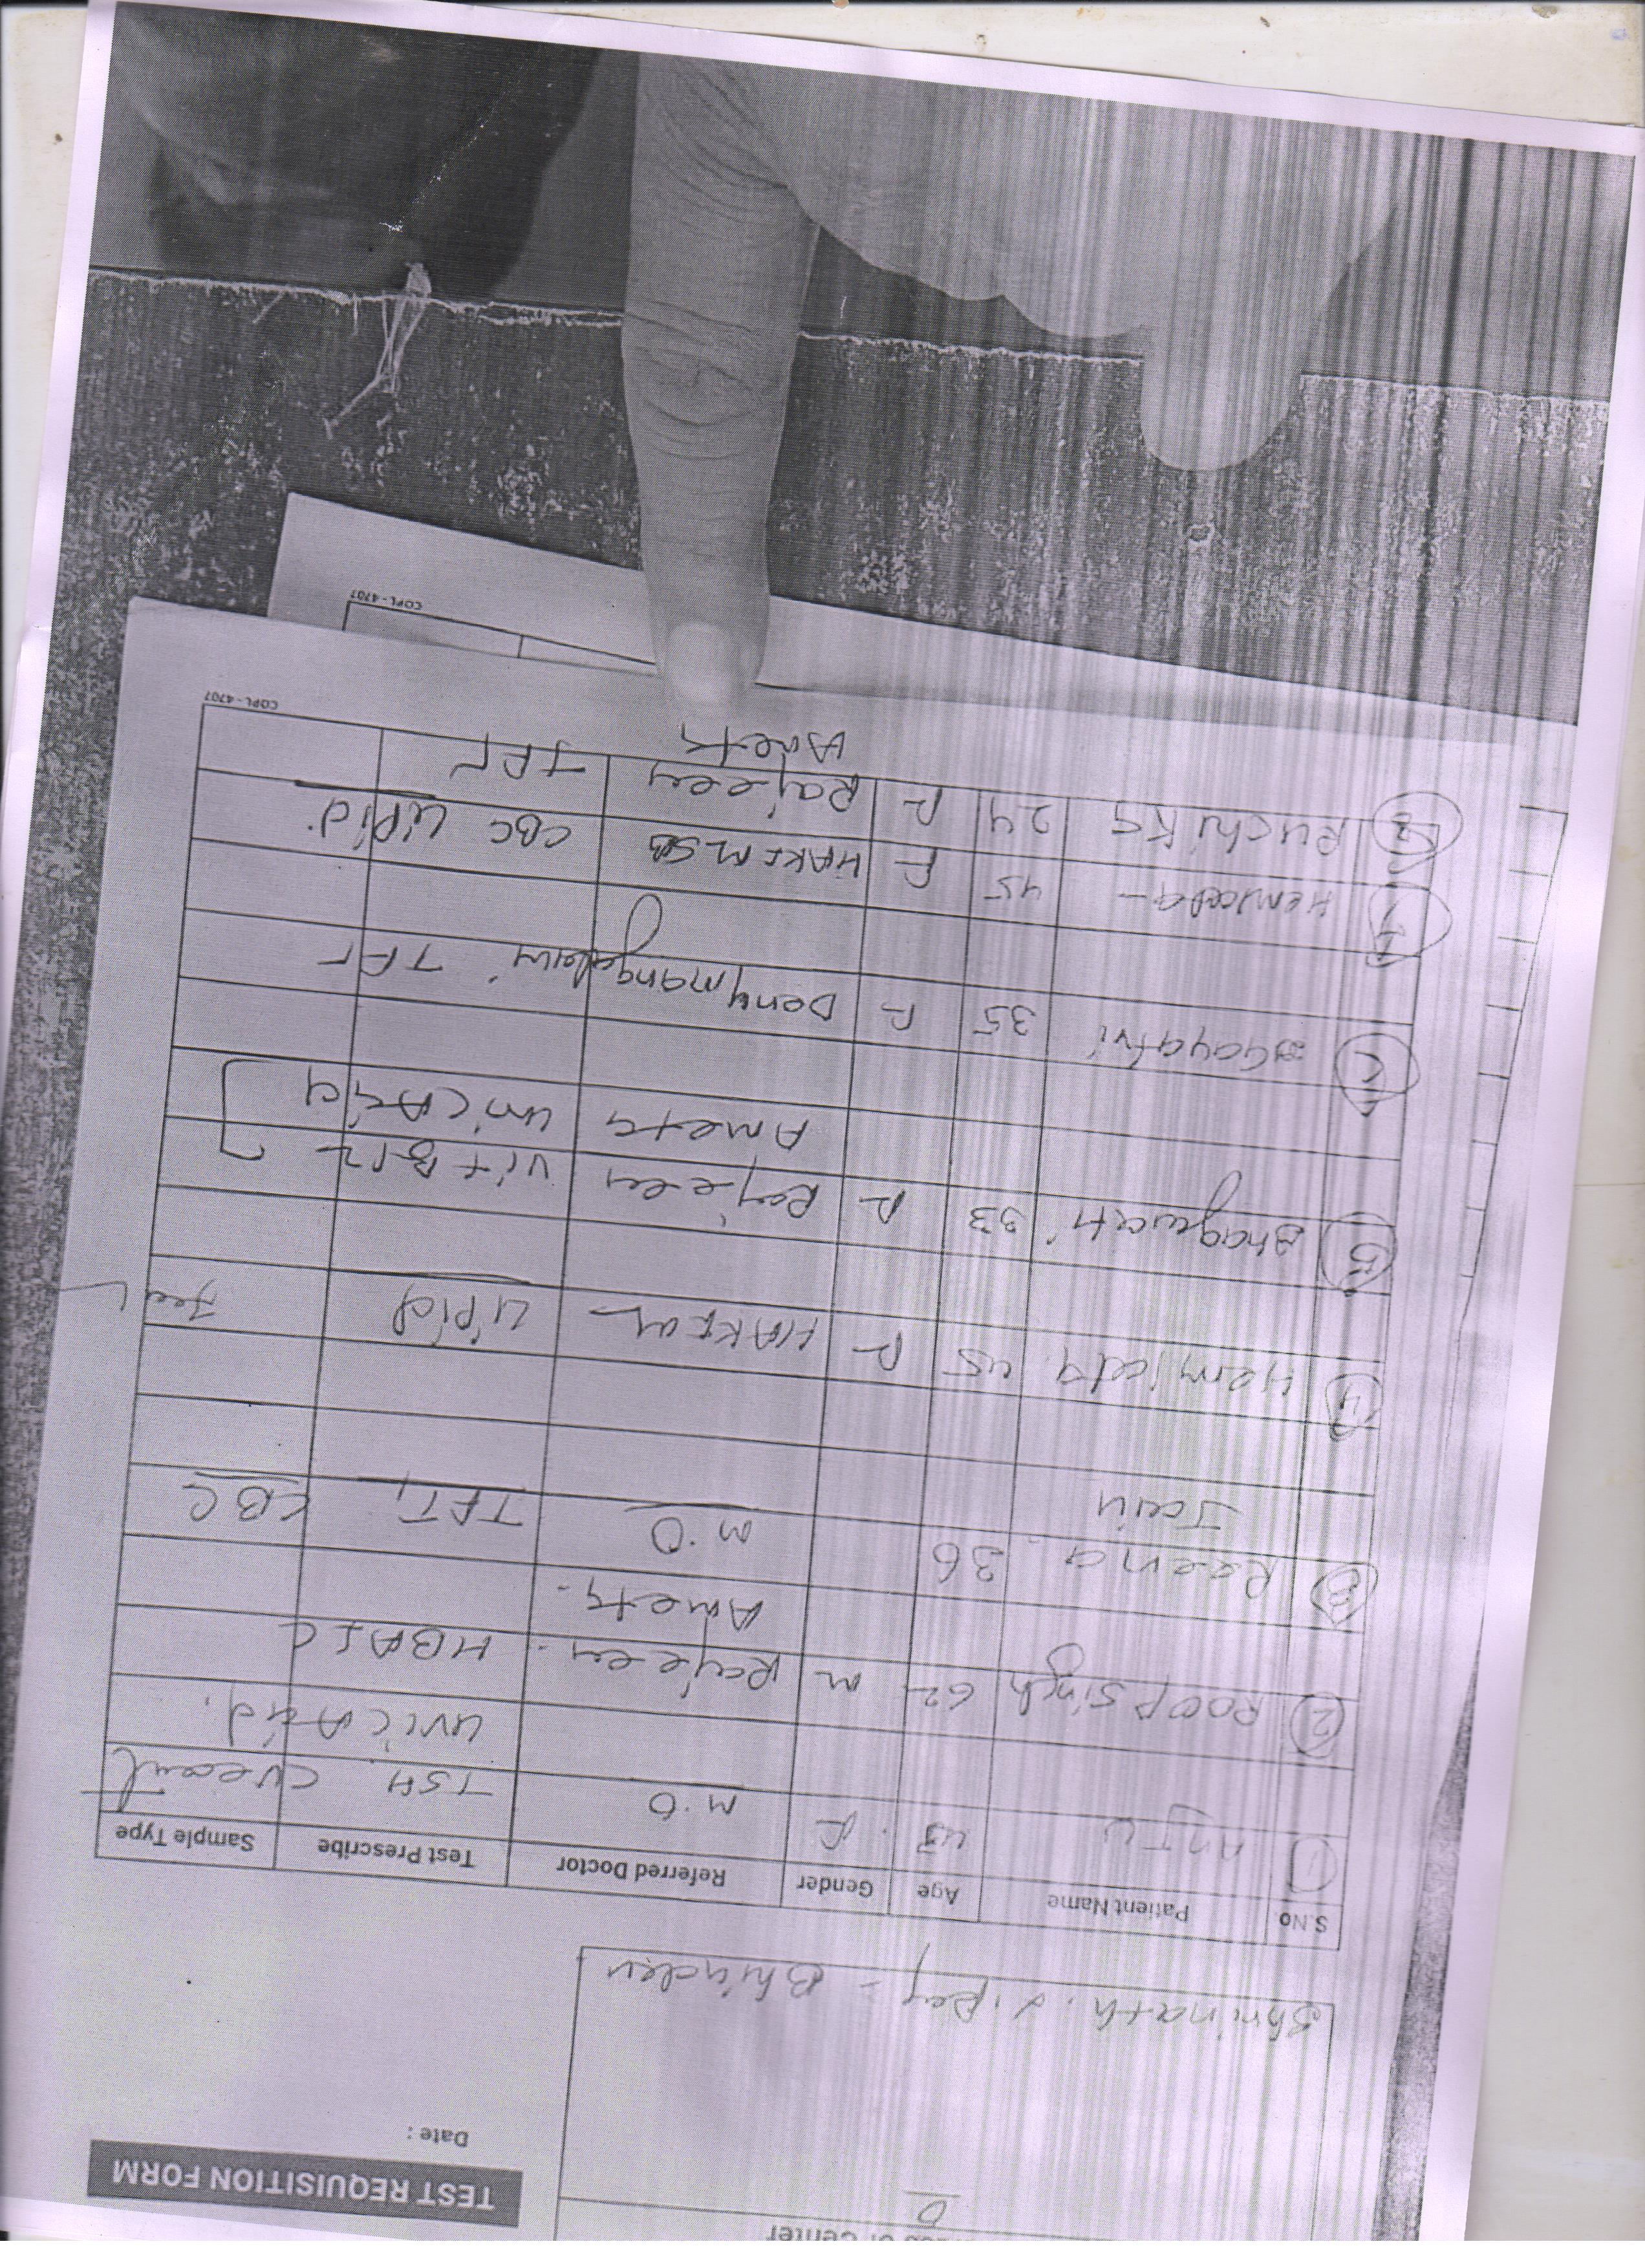 of Center
TEST REQUISITION FORM
Date :
Shrinath. D. Raj - Bhinder
S.No Patient Name Age Gender Referred Doctor Test Prescribe Sample Type
1 ANJU 43 F. M.O TSH
uric Acid.
2 ROOP Singh 62 M Rajeev. HBA1C
Ameta.
3 Reena 36 M.O TFT, CBC
Jain
4 Hemlata 45 F HAKIM Lipid
5 Bhagwati 33 F Rajeev Vit B-12
Ameta uric Acid
6 Gayatri 35 F TFT
7 Hemlata - 45 F HAKIM SB CBC Lipid.
8 Ruchika 24 F Rajeev TFT
Ameta
COPL-4707
COPL-4707